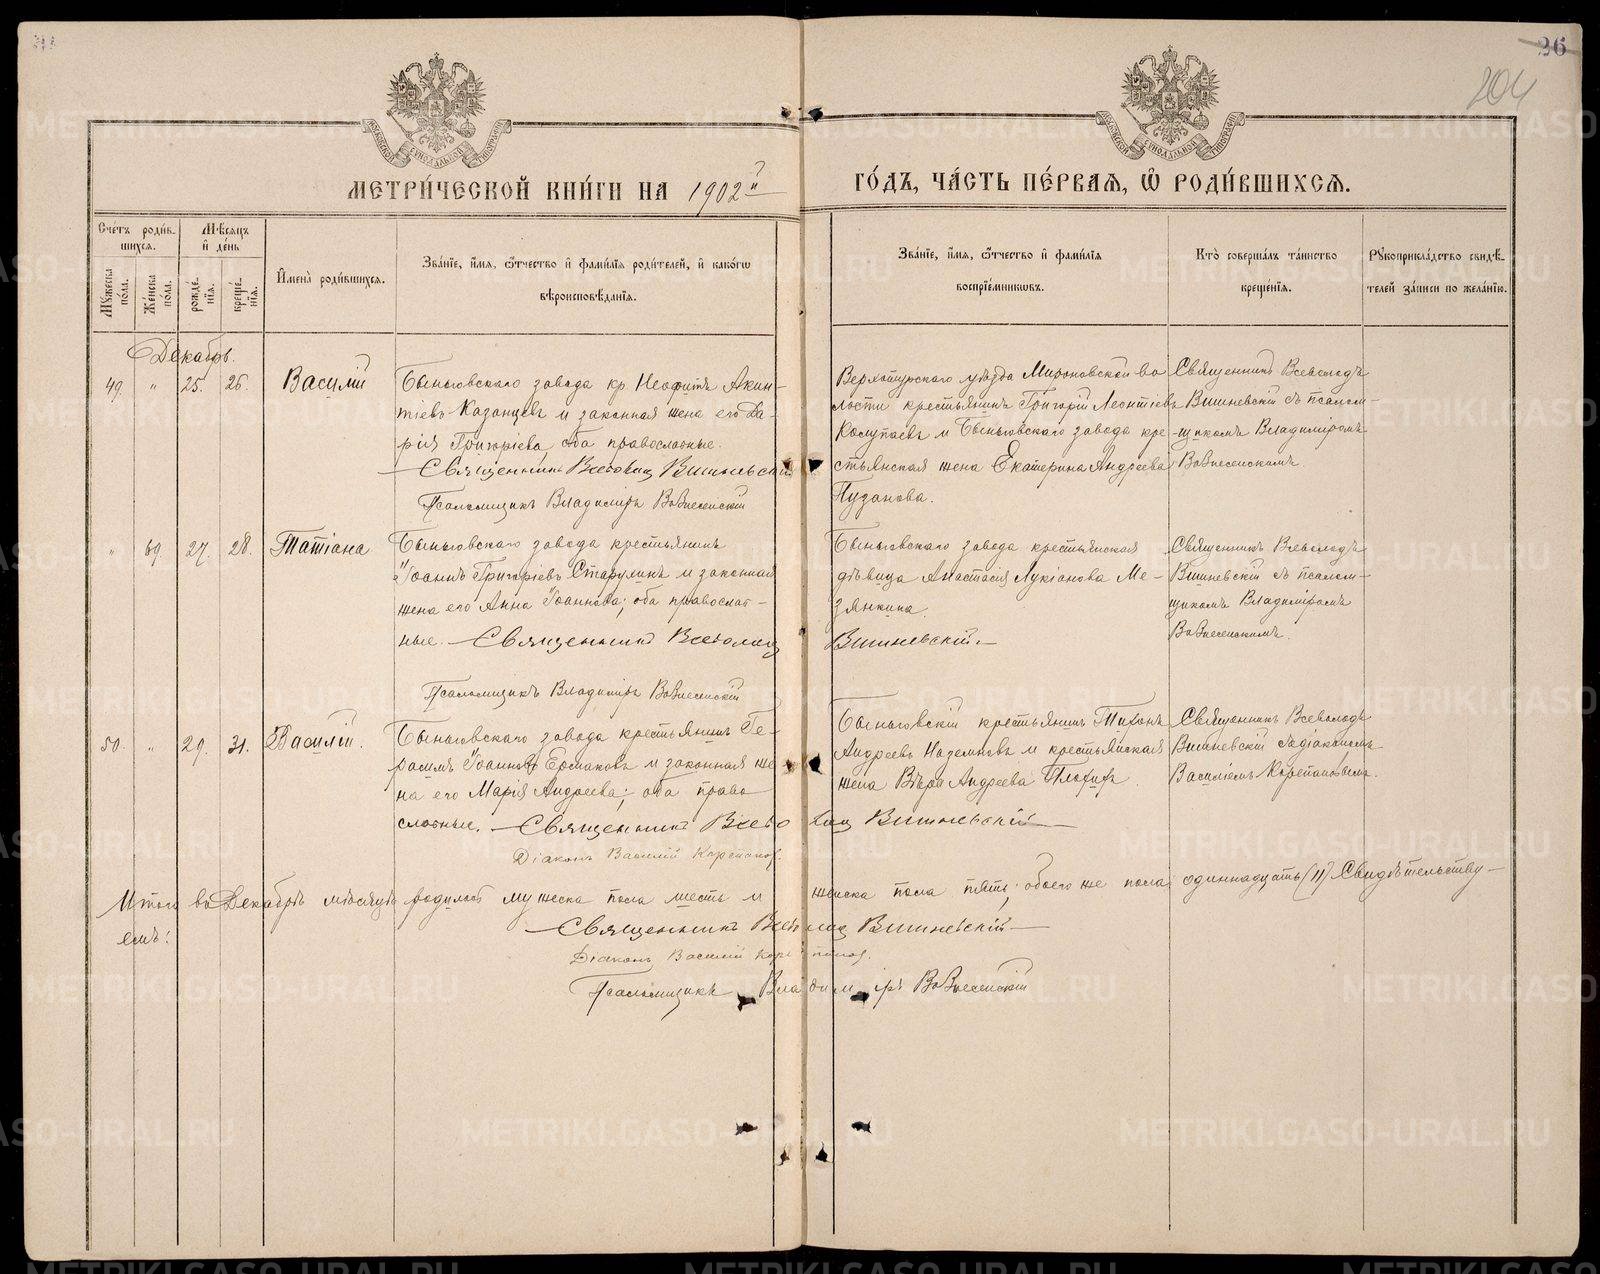 26
204
МЕТРИ́ЧЕСКОЙ КНИ́ГИ НА 1902й ГО́ДЪ, ЧА́СТЬ ПЕ́РВАѦ, Ѡ҆ РОДИ́ВШИХСѦ.
Сче́тъ роди́вшихсѧ.
Мѣ́сѧцъ и҆ де́нь
Мꙋ́жеска пола.
Же́нска пола.
рожде́нїѧ.
креще́нїѧ.
И҆мена̀ роди́вшихсѧ.
Зва́нїе, и҆́мѧ, ѻ҆́тчество и҆ фами́лїѧ роди́телей, и҆ како́гѡ
вѣроисповѣ́данїѧ.
Зва́нїе, и҆́мѧ, ѻ҆́тчество и҆ фами́лїѧ
воспрїе́мникѡвъ.
Кто̀ соверша́лъ та́инство
креще́нїѧ.
Рꙋкоприкла́дство свидѣ́-
телей за́писи по жела́нїю.
Декабрь.
49. „ 25. 26. Василій
Быньговскаго завода кр. Неофитъ Акин-
тіевъ Казанцевъ и законная жена его Да-
рія Григоріева, оба православные.
Священникъ Всеволодъ Вишневскій
Псаломщикъ Владиміръ Вознесенскій
Верхотурскаго уѣзда Мироновской во
лости крестьянинъ Григорій Леонтіевъ
Колупаевъ и Быньговскаго завода кре-
стьянская жена Екатерина Андреева
Пузанова.
Священникъ Всеволодъ
Вишневскій съ псалом-
щикомъ Владиміромъ
Вознесенскимъ
„ 69. 27. 28. Татіана
Быньговскаго завода крестьянинъ
Іоаннъ Григорьевъ Старулинъ и законная
жена его Анна Іоаннова; оба православ-
ные. — Священникъ Всеволодъ Вишневскій. —
Псаломщикъ Владиміръ Вознесенскій
Быньговскаго завода крестьянская
дѣвица Анастасія Лукіанова Ме-
зянкина
Священникъ Всеволодъ
Вишневскій съ псалом-
щикомъ Владиміромъ
Вознесенскимъ.
50. „ 29. 31. Василій.
Быньговскаго завода крестьянинъ Ге-
расимъ Іоанновъ Ермаковъ и законная же
на его Марія Андреева; оба право
славные. — Священникъ Всеволодъ Вишневскій —
Діаконъ Василій Корепановъ.
Быньговскій крестьянинъ Тихонъ
Андреевъ и крестьянская
жена Вѣра Андреева
Священникъ Всеволодъ
Вишневскій съ діакономъ
Василіемъ Корепановымъ.
Итого въ Декабрѣ мѣсяцѣ родилось мужеска пола шесть и женска пола пять; обоего же пола одиннадцать (11) Свидѣтельству-
емъ:
— Священникъ Всеволодъ Вишневскій —
Діаконъ Василій Корепановъ.
Псаломщикъ Владиміръ Вознесенскій